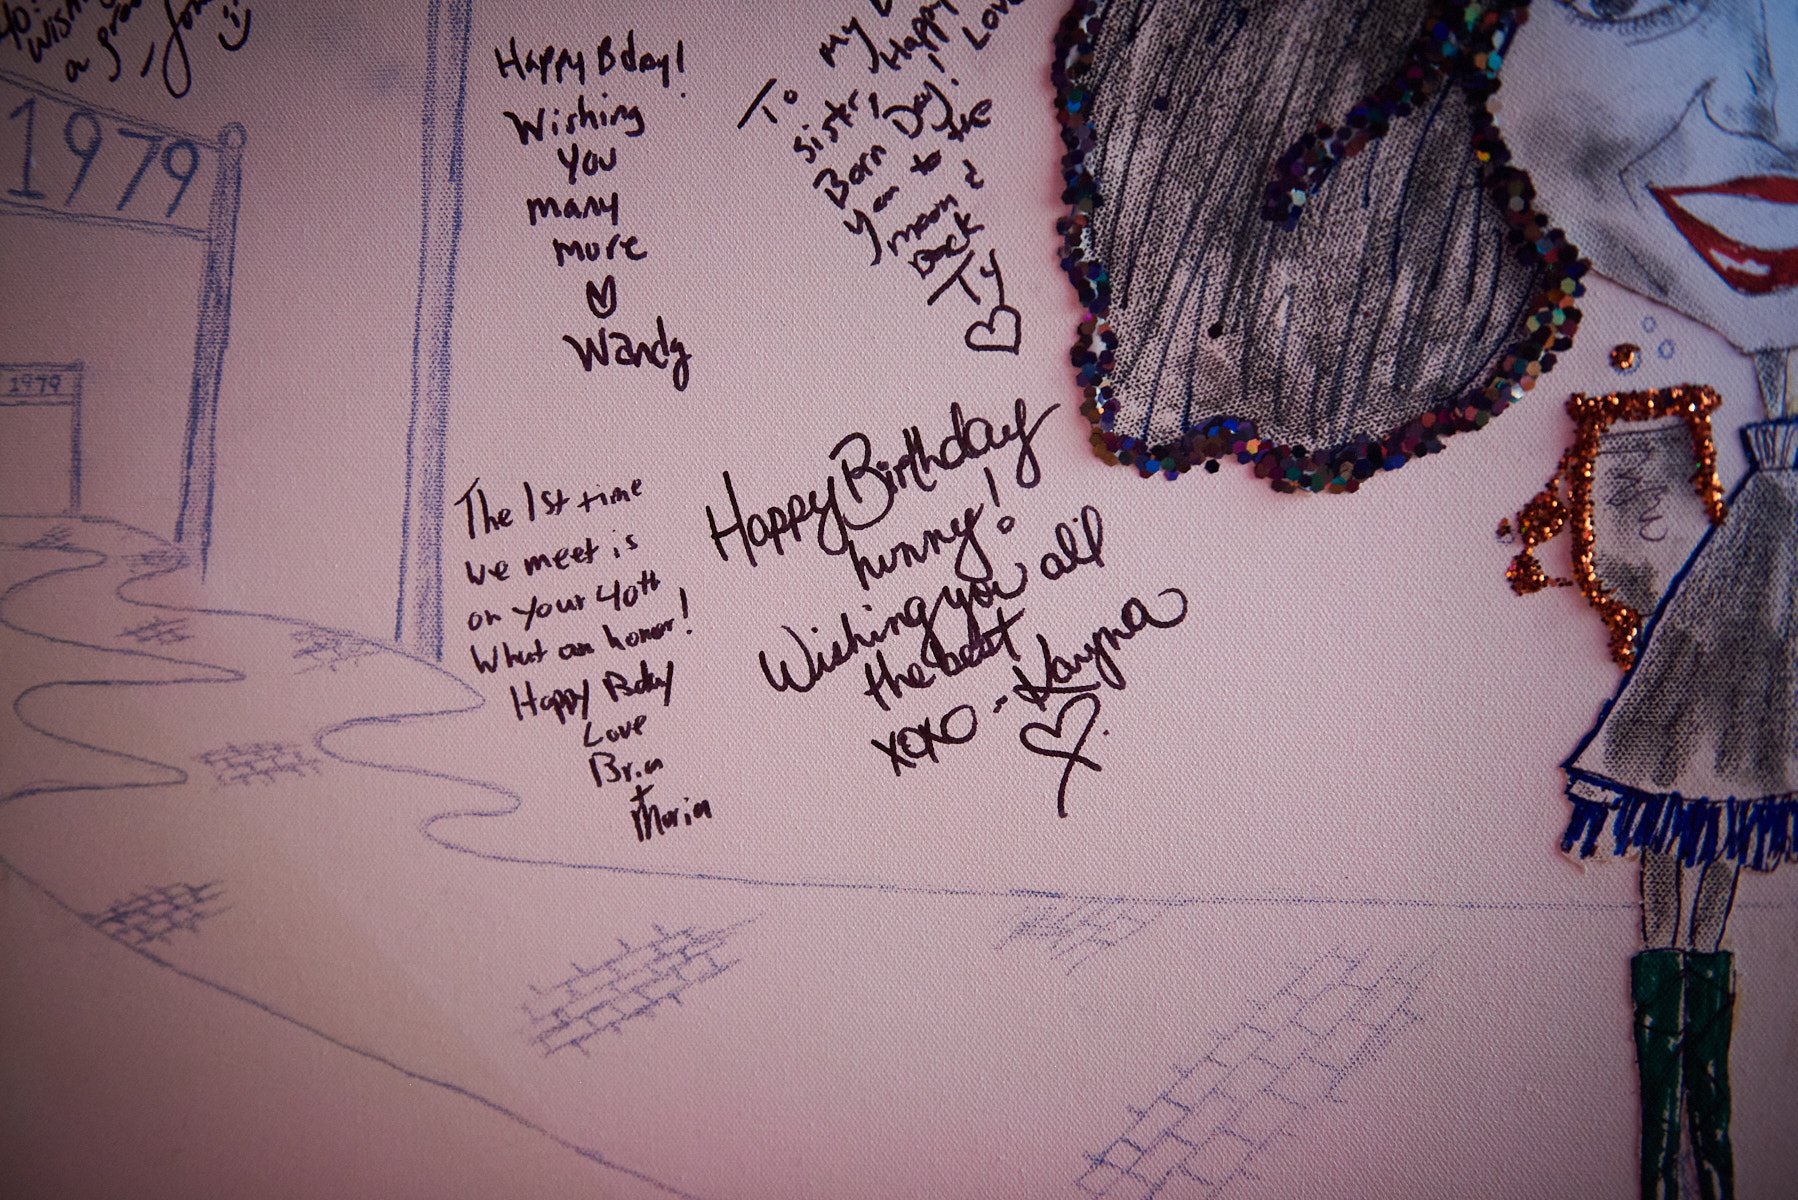 40!
wishing
a gre
1979
1979
Happy Bday!
Wishing
you
many
more
Wandy
To my
sistr, Happy
Born Day! Love
you to the
moon &
back
Ty
The 1st time
we meet is
on your 40th
What an honor!
Happy Bday
Love
Bria
+
Maria
Happy Birthday
hunny!
Wishing you all
the best
xoxo - Karyna